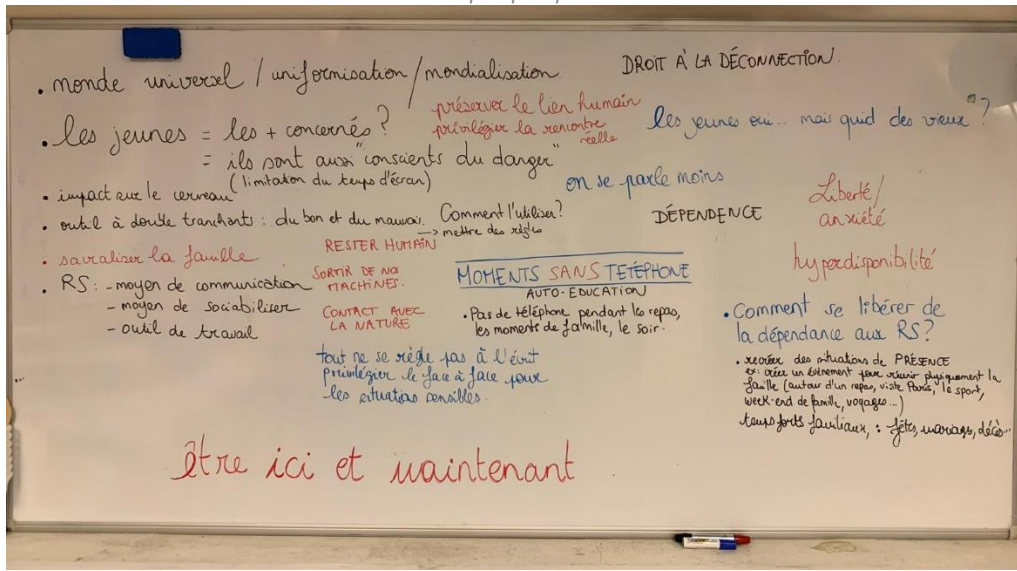 • monde universel / uniformisation / mondialisation
DROIT À LA DÉCONNECTION.
• les jeunes = les + concernés ?
= ils sont aussi "conscients du danger"
(limitation du temps d'écran)
préserver le lien humain
privilégier la rencontre
réelle
les jeunes oui... mais quid des vieux" ?
• impact sur le cerveau
on se parle moins
• outil à double tranchants : du bon et du mauvais.
Comment l'utiliser ?
→ mettre des règles
DÉPENDENCE
Liberté/
anxiété
hyperdisponibilité
• sacraliser la famille
• RS : - moyen de communication
- moyen de sociabiliser
- outil de travail
RESTER HUMAIN
SORTIR DE NOS
MACHINES.
CONTACT AVEC
LA NATURE
MOMENTS SANS TETÉPHONE
AUTO-EDUCATION
• Pas de téléphone pendant les repas,
les moments de famille, le soir.
tout ne se règle pas à l'écrit
privilégier le face à face pour
les situations sensibles.
• Comment se libérer de
la dépendance aux RS ?
• recréer des situations de PRÉSENCE
ex: créer un évènement pour réunir physiquement la
famille (autour d'un repas, visite Paris, le sport,
week-end de famille, voyages...)
temps forts familiaux, : fêtes, mariages, décès...
être ici et maintenant